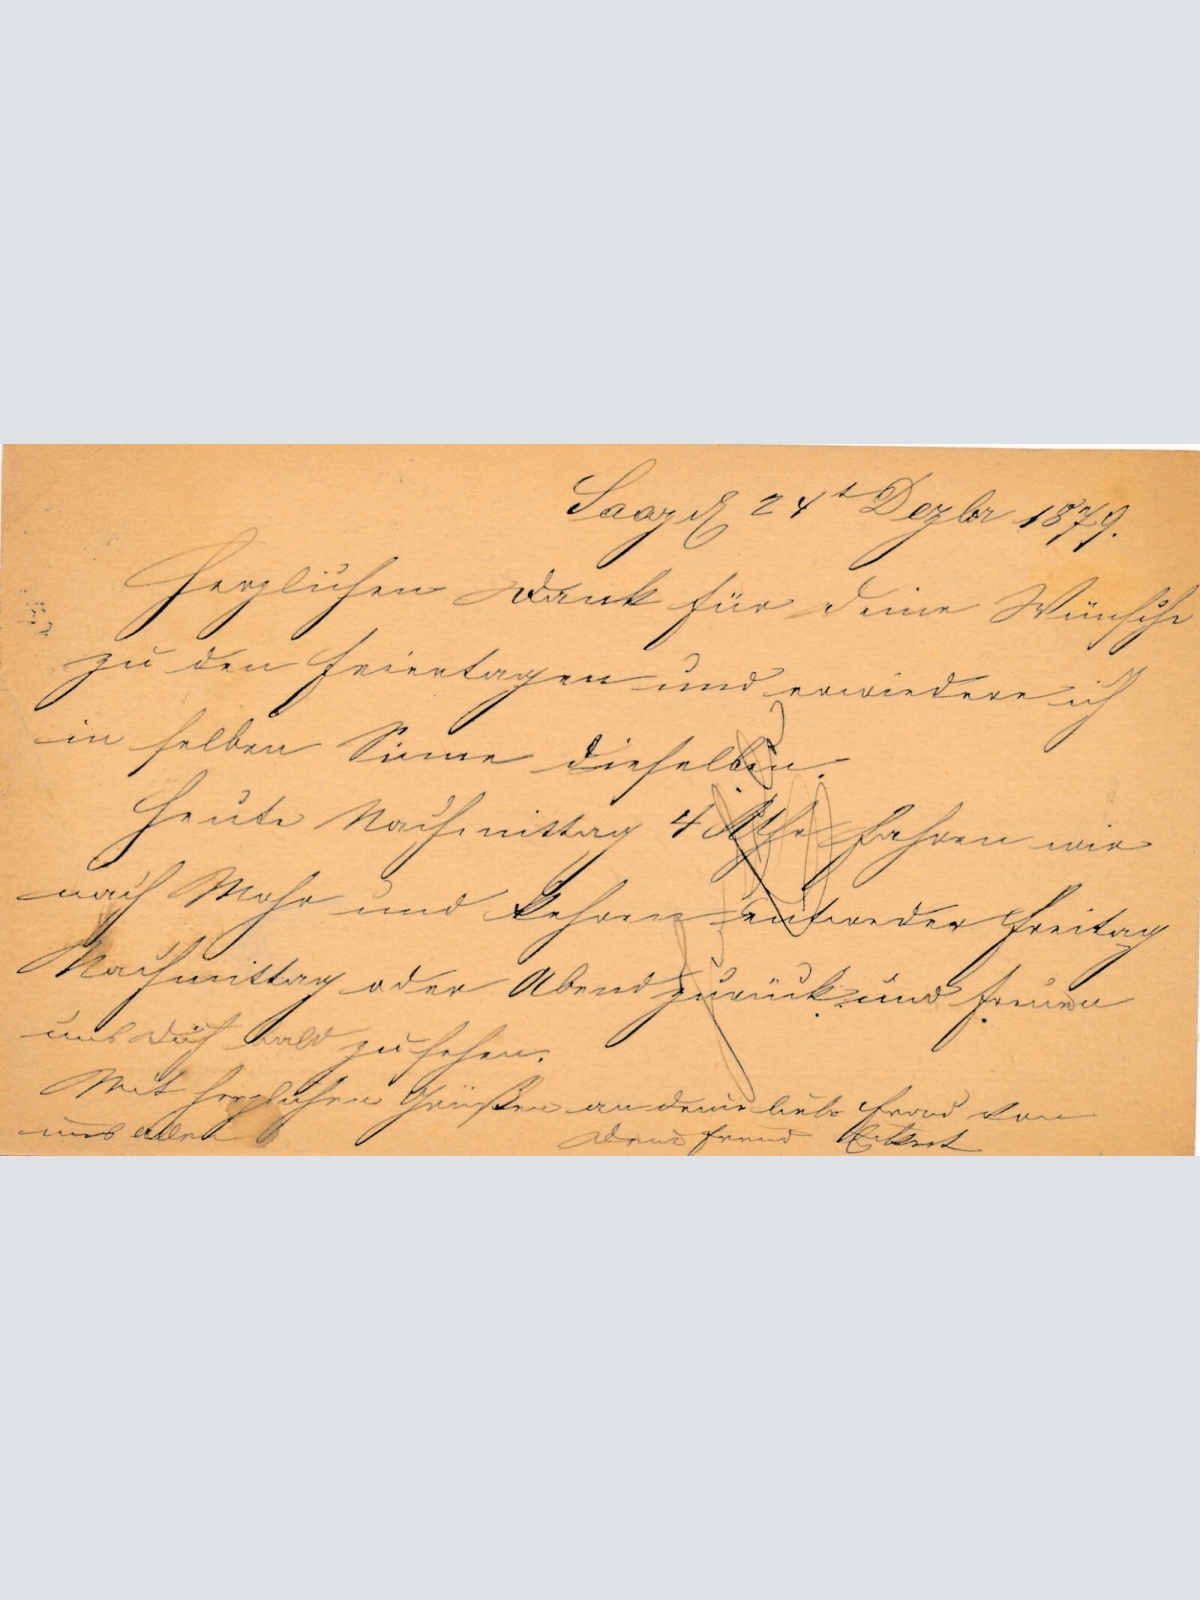 Saaz d. 24t Dezbr 1879.
Herzlichen Dank für deine Wünsche
zu den Feiertagen und erwiedere ich
in selben Sinne dieselben.
Heute Nachmittag 4 Uhr fahren wir
nach Mohr und kehren entweder Freitag
Nachmittag oder Abend zurück und freuen
uns Dich bald zu sehen.
Mit herzlichen Grüßen an deine liebe Frau von
uns allen
Dein Freund